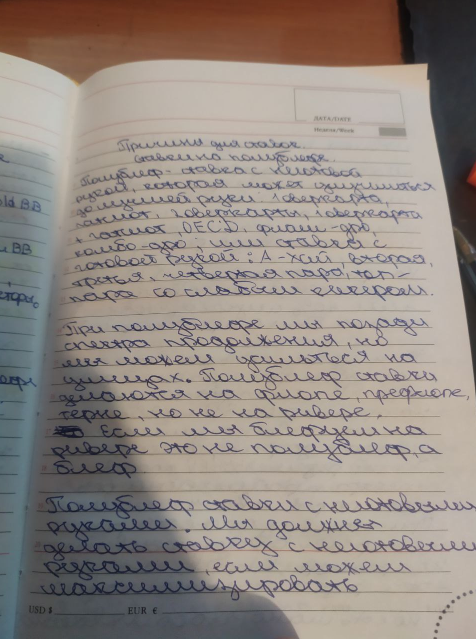 ДАТА/DATE
Неделя/Week
Причина для ставок.
Ставки на полублефе.
Полублеф - ставка с неготовой
рукой, которая может улучшиться
до лучшей руки: 1 оверкарта,
гатшот, 2 оверкарты, 1 оверкарта
+ гатшот, OECD, флаш-дро,
комбо-дро; или ставка с
готовой рукой: A-хай, вторая,
третья, четвертая пара, топ-
пара со слабым кикером.
При полублефе мы позади
спектра продолжения, но
мы можем усилиться на
улицах. Полублеф ставки
делаются на флопе, префлопе,
терне, но не на ривере.
Если мы блефуем на
ривере это не полублеф, а
блеф
Полублеф ставки с неготовыми
руками. Мы должны
делать ставку с неготовыми
руками, если можем
максимизировать
USD $
EUR €
old BB
BB